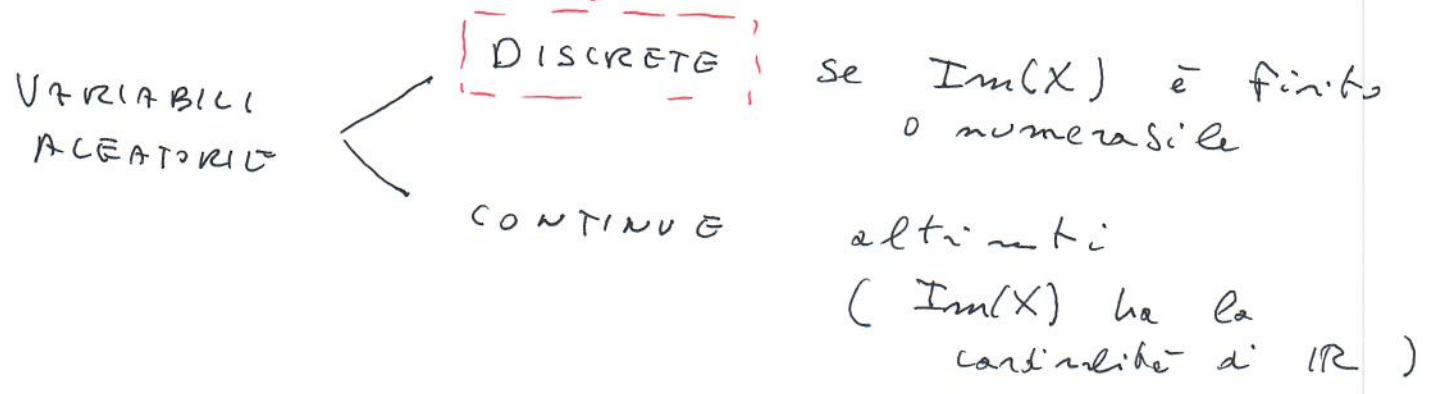 VARIABILI
ALEATORIE
DISCRETE se Im(X) è finito
o numerabile
CONTINUE altrimenti
( Im(X) ha la
cardinalità di IR )